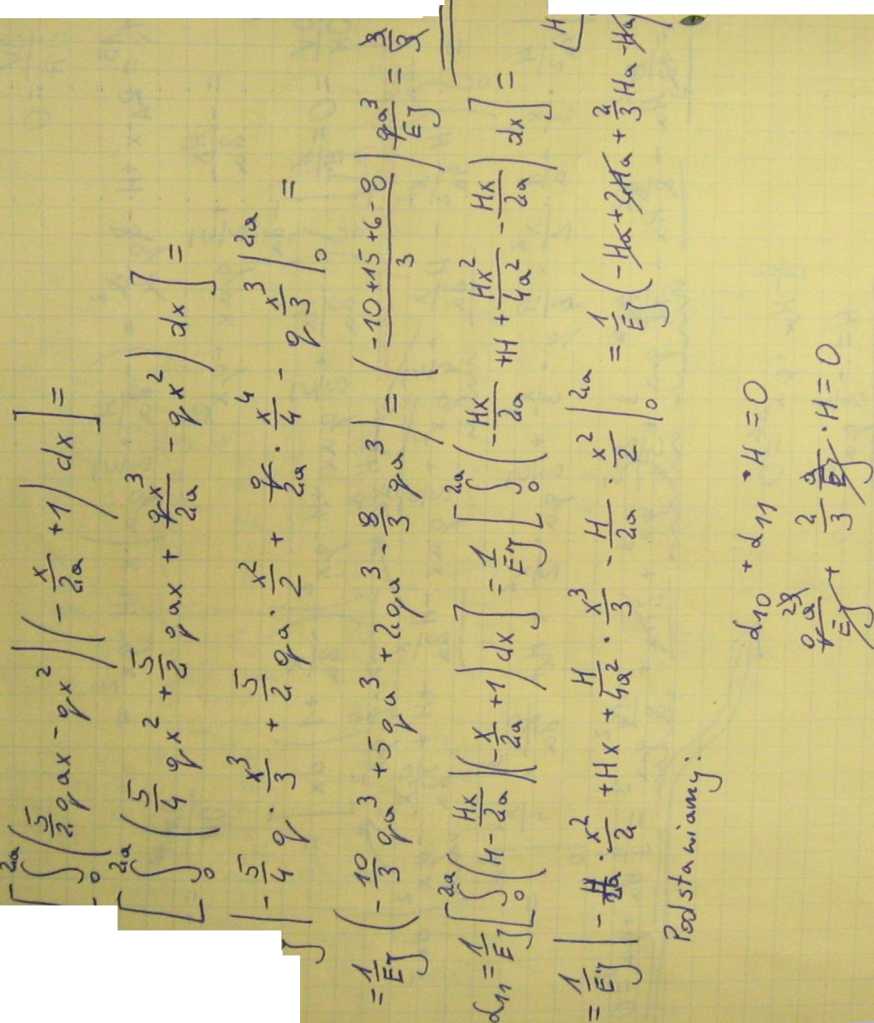 [∫₀²ᵃ(5/2 qax - qx²)(-x/2a + 1) dx] =
[∫₀²ᵃ(5/4 qx² + 5/2 qax + qx³/2a - qx²) dx] =
[-5/4 q · x³/3 + 5/2 qa · x²/2 + q/2a · x⁴/4 - q x³/3 |₀²ᵃ =
= 1/EJ (-10/3 qa³ + 5qa³ + 2qa³ - 8/3 qa³) = (-10+15+6-8 / 3) qa³/EJ = 3/3
α₁₁ = 1/EJ [∫₀²ᵃ(H - Hx/2a)(-x/2a + 1) dx] = 1/EJ [∫₀²ᵃ(-Hx/2a + H + Hx²/4a² - Hx/2a) dx] =
= 1/EJ | -H/2a · x²/2 + Hx + H/4a² · x³/3 - H/2a · x²/2 |₀²ᵃ = 1/EJ (-Ha + 2Ha + 2/3 Ha - Ha
Podstawiamy:
α₁₀ + α₁₁ · H = 0
qa³/EJ + 2/3 a/EJ · H = 0